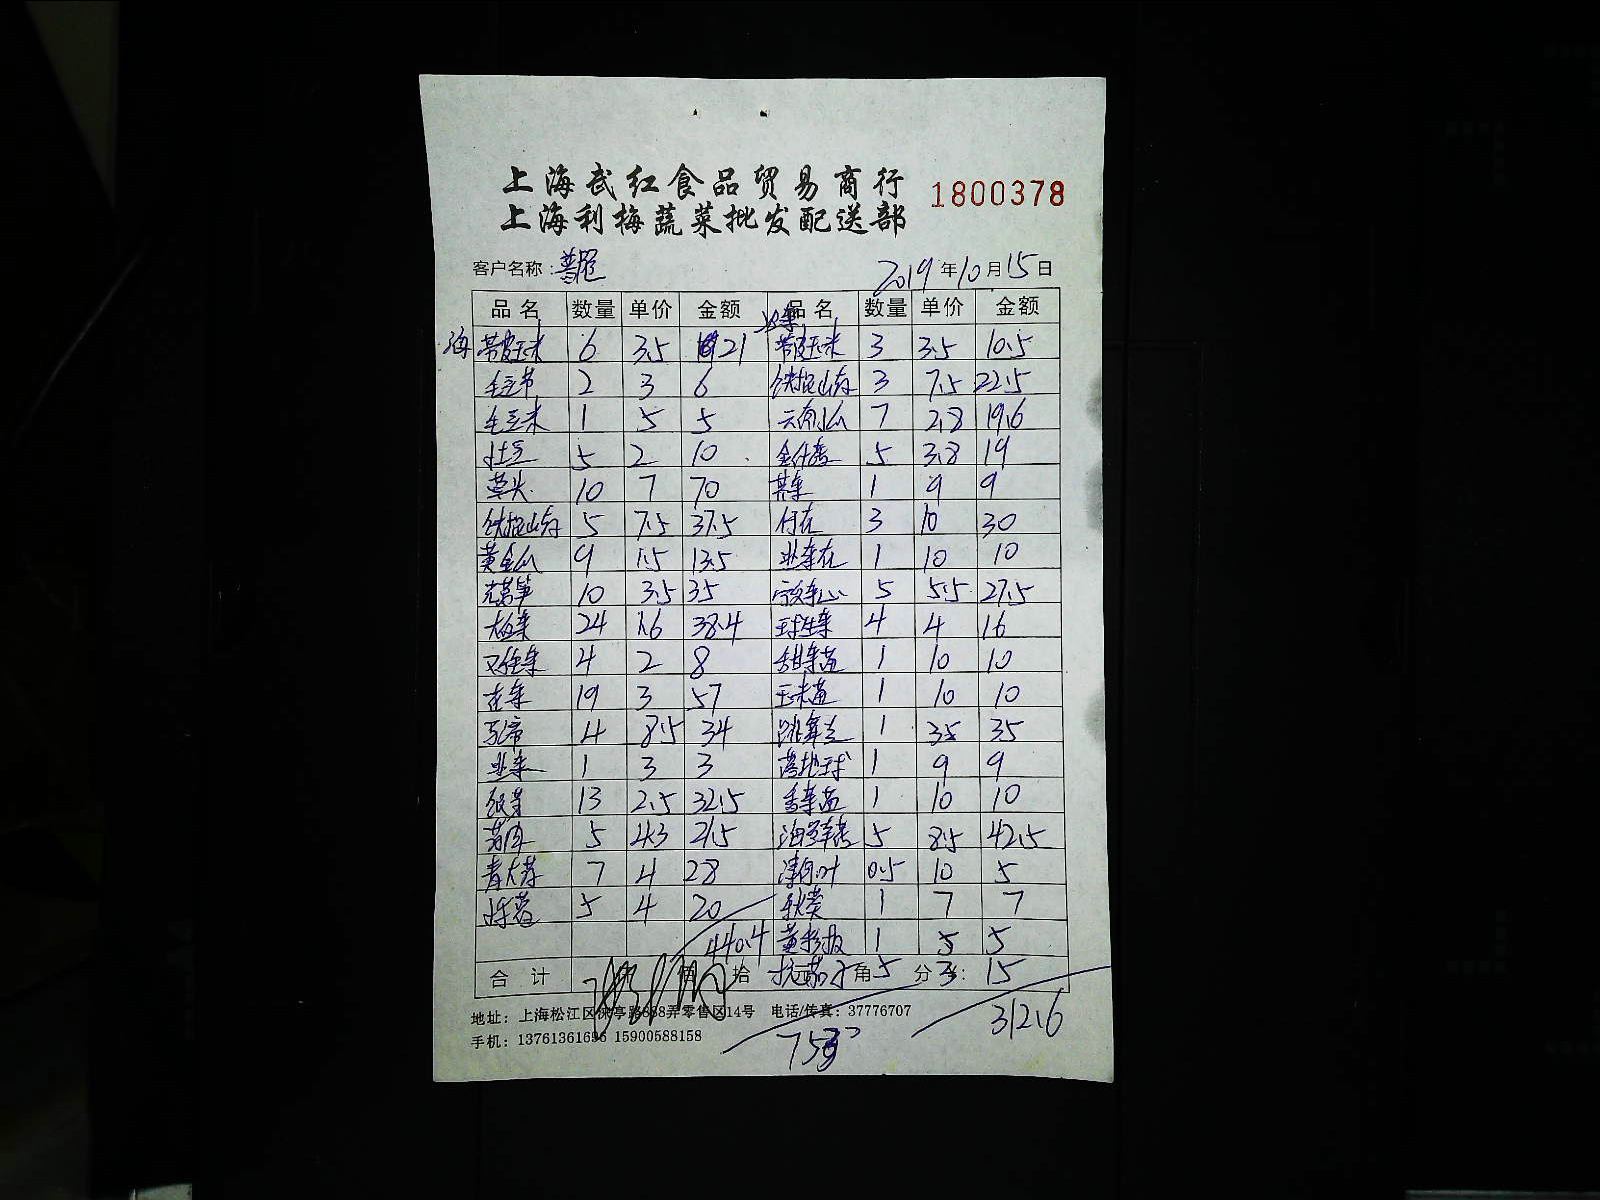 上海武红食品贸易商行
上海利梅蔬菜批发配送部
1800378
客户名称:
2019年10月15日
品名 数量 单价 金额 品名 数量 单价 金额
海 带皮玉米 6 3.5 21 带皮玉米 3 3.5 10.5
毛豆节 2 3 6 铁棍山药 3 7.5 22.5
毛豆米 1 5 5 云南小瓜 7 2.8 19.6
土豆 5 2 10 5 3.8 19
草头 10 7 70 1 9 9
铁棍山药 5 7.5 37.5 3 10 30
黄金瓜 9 1.5 13.5 1 10 10
光莴笋 10 3.5 35 5 5.5 27.5
24 1.6 38.4 球生菜 4 4 16
4 2 8 甜菜苗 1 10 10
19 3 57 玉米苗 1 10 10
马蹄 4 8.5 34 跳舞兰 1 35 35
1 3 3 落地球 1 9 9
银芽 13 2.5 32.5 香菜苗 1 10 10
5 4.3 21.5 5 8.5 42.5
7 4 28 0.5 10 5
5 4 20 秋葵 1 7 7
440.4 1 5 5
合计 佰 拾 元 角 分 杭茄子 5 3 15
312.6
753
地址:上海松江区 亭路 88弄零售区14号 电话/传真:37776707
手机:13761361696 15900588158